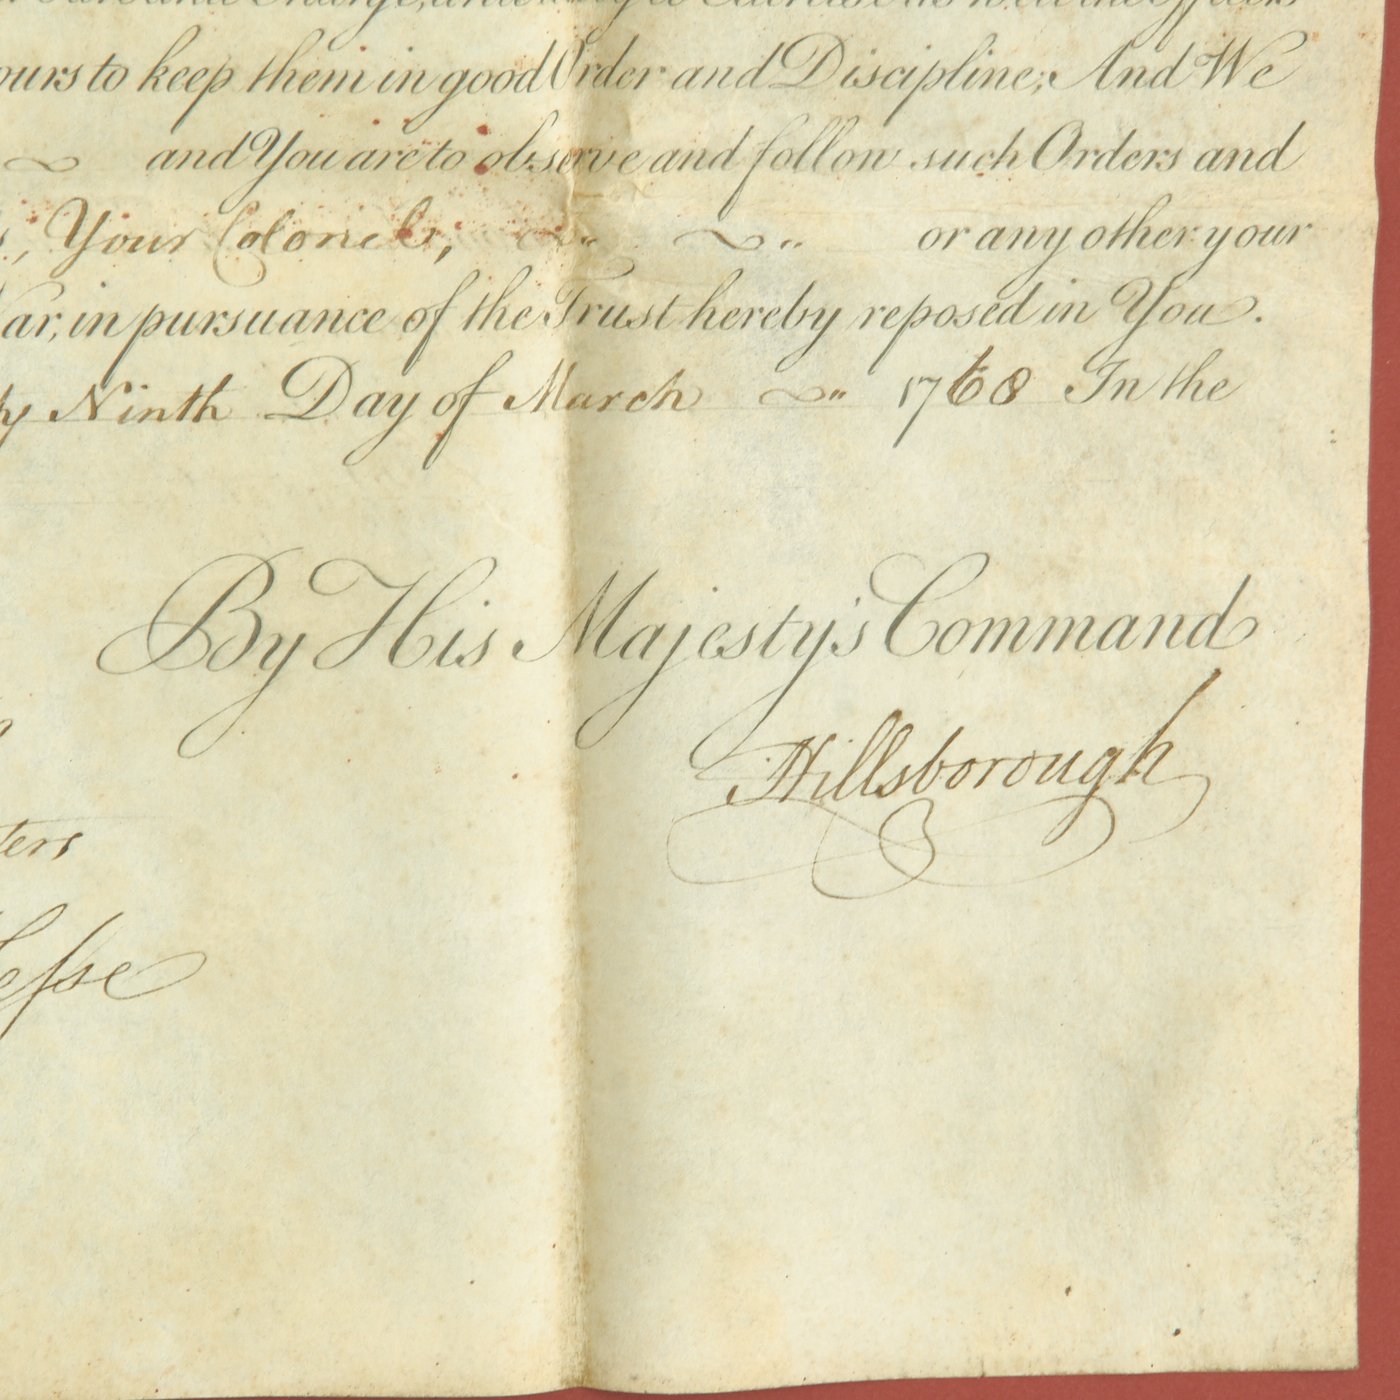 ours to keep them in good Order and Discipline; And We
and You are to observe and follow such Orders and
Your Colonels, or any other your
ar, in pursuance of the Trust hereby reposed in You.
Ninth Day of March 1768 In the
By His Majesty's Command
Hillsborough
ters
esse